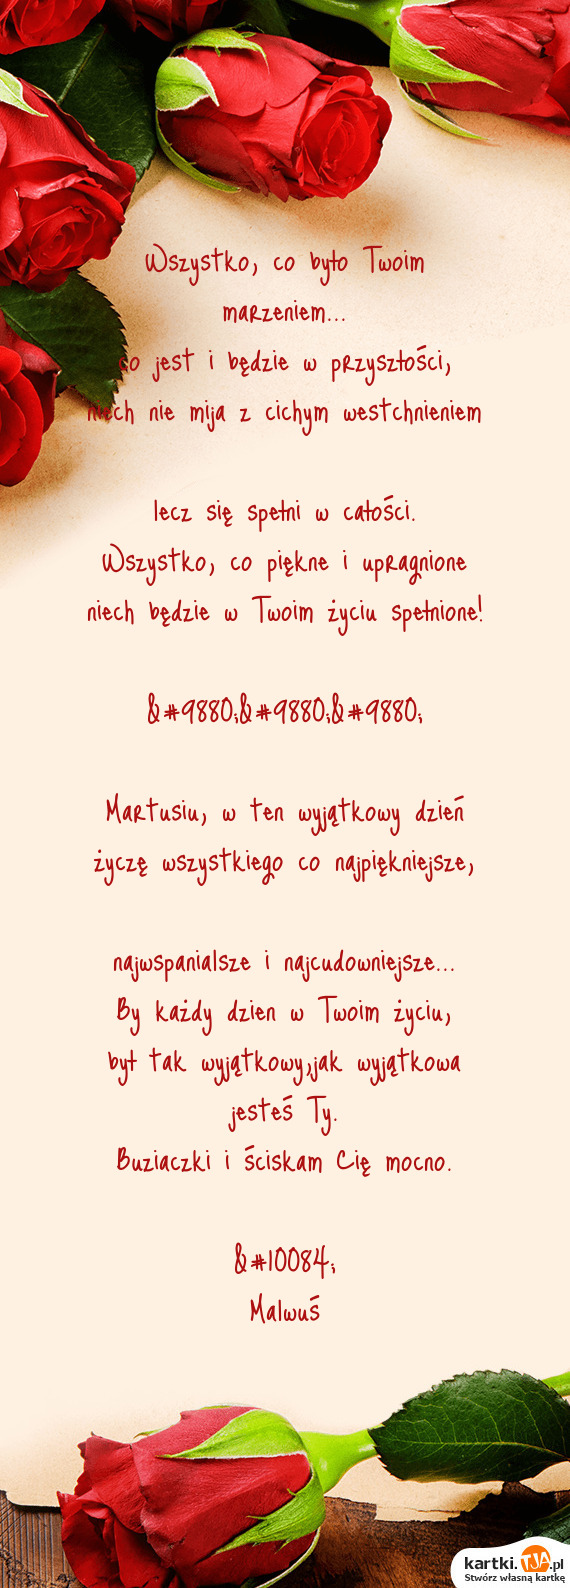 Wszystko, co było Twoim
marzeniem...
co jest i będzie w przyszłości,
niech nie mija z cichym westchnieniem
lecz się spełni w całości.
Wszystko, co piękne i upragnione
niech będzie w Twoim życiu spełnione!
&#9880;&#9880;&#9880;
Martusiu, w ten wyjątkowy dzień
życzę wszystkiego co najpiękniejsze,
najwspanialsze i najcudowniejsze...
By każdy dzien w Twoim życiu,
był tak wyjątkowy,jak wyjątkowa
jesteś Ty.
Buziaczki i ściskam Cię mocno.
&#10084;
Malwuś
kartki.TJA.pl
Stwórz własną kartkę